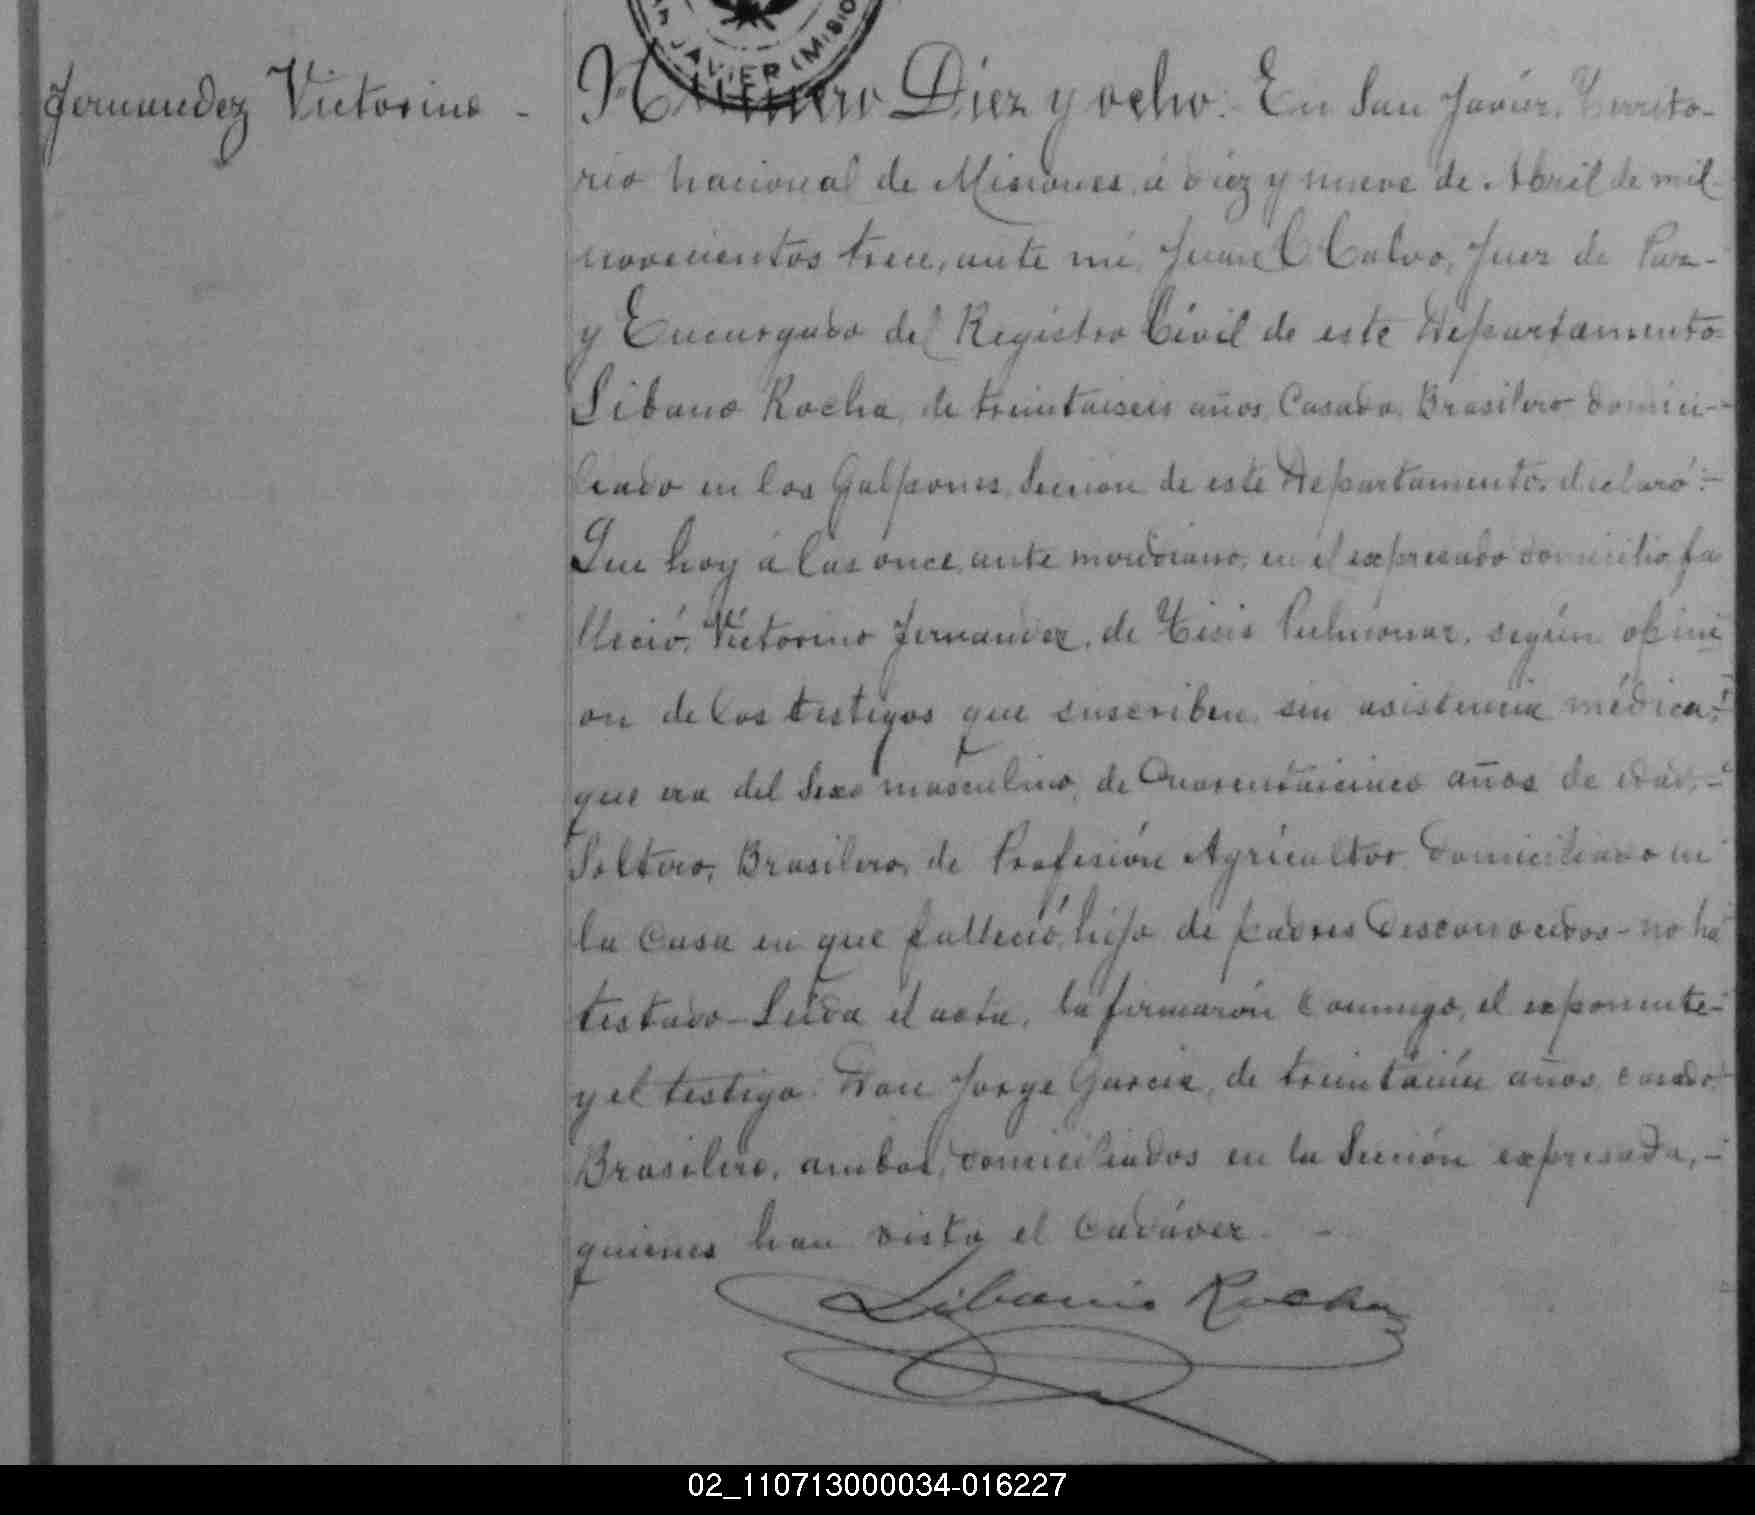 JAVIER (MISIO
Fernandez Victorino -
Número Diez y ocho:- En San Javier, Territo-
rio Nacional de Misiones, á diez y nueve de Abril de mil-
novecientos trece, ante mi, Juan C Calvo, Juez de Paz-
y Encargado del Registro Civil de este Departamento-
Libano Rocha, de treintaiseis años, Casado, Brasilero domici-
liado en los Galpones, Sección de este Departamento, declaró:-
Que hoy á las once, ante meridiano, en el expresado domicilio, fa
lleció, Victorino Fernandez, de Tisis Pulmonar, según opini
on de los testigos que suscriben, sin asistencia médica,-
que era del Sexo masculino, de Cuarentaicinco años de edad,-
Soltero, Brasilero, de Profesión Agricultor domiciliado en
la Casa en que falleció, hijo de padres desconocidos - no ha
testado - Leída el acta, la firmarón conmigo, el exponente-
y el testigo. Don Jorge Garcia, de treintaiún años, casado,
Brasilero, ambos, domiciliados en la Sección expresada,-
quienes han visto el Cadáver. -
Libanio Rocha
02_110713000034-016227